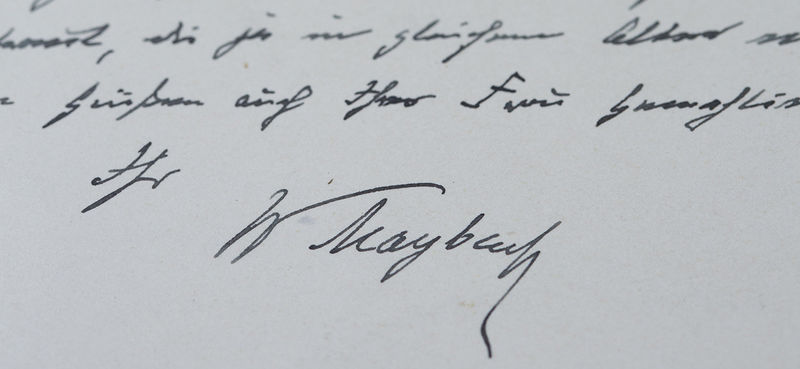 die ja in gleichem Alter
Grüßen auch Ihrer Frau Gemahlin
Ihr
W Maybach